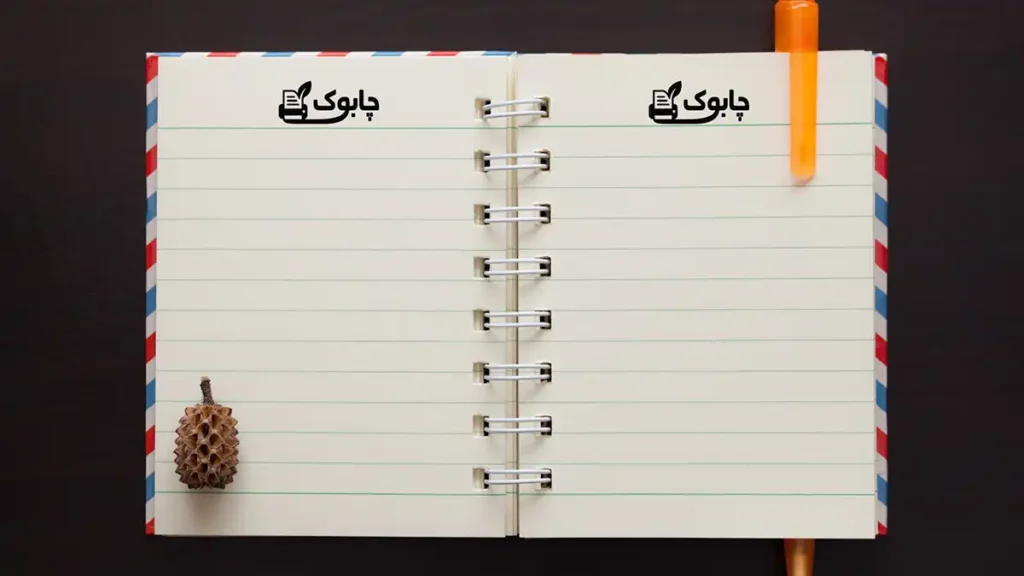 چابوک
چابوک